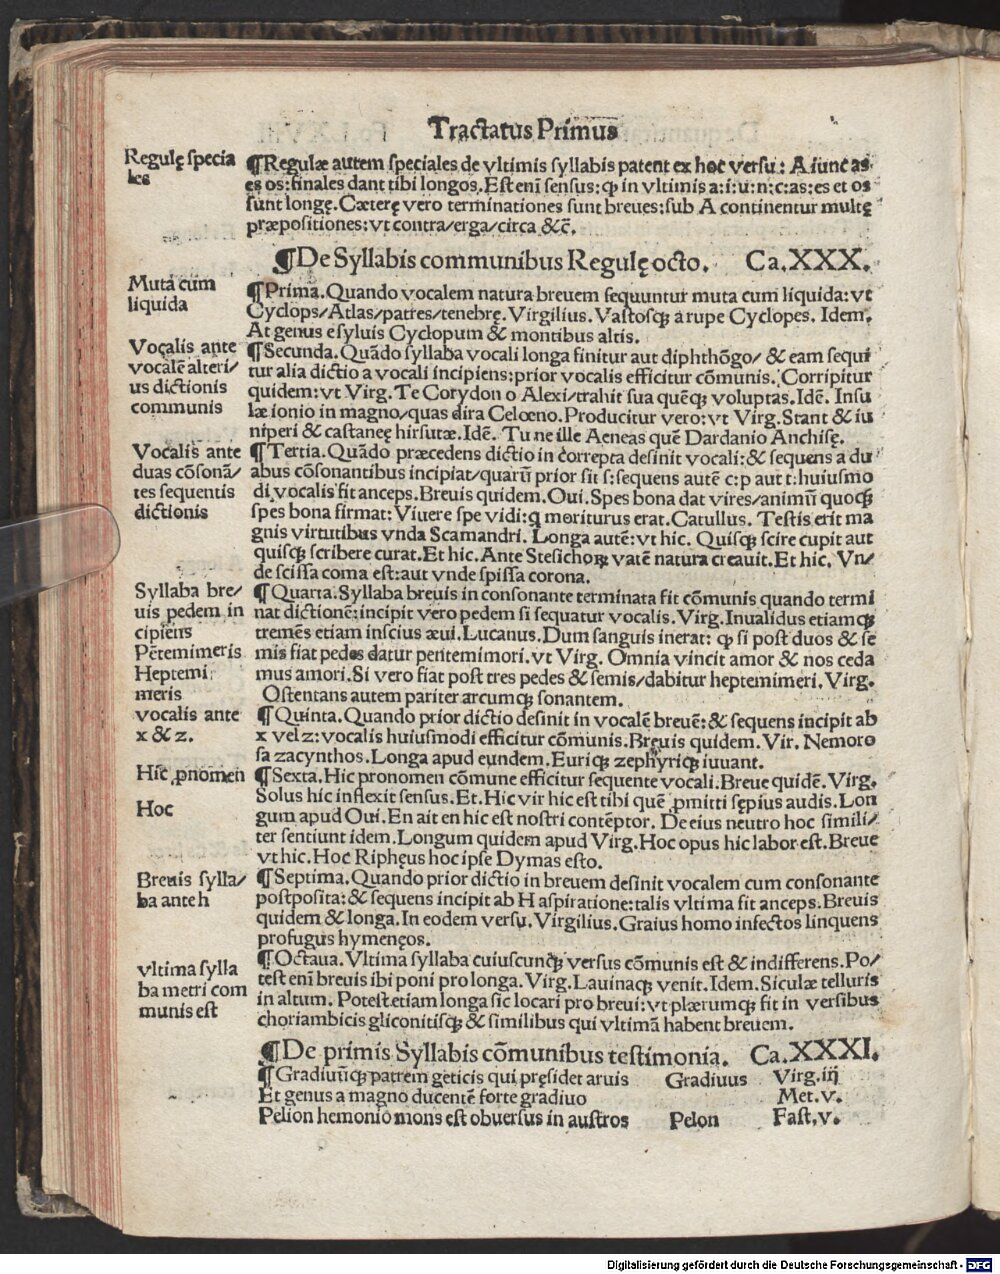 Tractatus Primus
Regulę specia
les
¶Regulæ autem speciales de vltimis syllabis patent ex hoc versu: A iunc as
es os:finales dant tibi longos.Est enī sensus:ꝙ in vltimis a:i:u:n:c:as:es et os
sunt longę.Cæterę vero terminationes sunt breues:sub A continentur multę
præpositiones:vt contra/erga/circa &c̄.
¶De Syllabis communibus Regulę octo. Ca.XXX.
Muta cum
liquida
¶Prima.Quando vocalem natura breuem sequuntur muta cum liquida:vt
Cyclops/Atlas/patres/tenebrę.Virgilius.Vastosqꝫ a rupe Cyclopes. Idem.
At genus e syluis Cyclopum & montibus altis.
Vocalis ante
vocalē alteri/
us dictionis
communis
¶Secunda.Quādo syllaba vocali longa finitur aut diphthōgo/ & eam sequi
tur alia dictio a vocali incipiens:prior vocalis efficitur cōmunis. Corripitur
quidem:vt Virg. Te Corydon o Alexi/trahit sua quēqꝫ voluptas.Idē. Insu
læ ionio in magno/quas dira Celœno.Producitur vero:vt Virg.Stant & iu
niperi & castaneę hirsutæ.Idē. Tu ne ille Aeneas quē Dardanio Anchisę.
Vocalis ante
duas cōsonā/
tes sequentis
dictionis
¶Tertia.Quādo præcedens dictio in correpta desinit vocali:& sequens a du
abus cōsonantibus incipiat/quarū prior sit s:sequens autē c:p aut t:huiusmo
di vocalis fit anceps.Breuis quidem.Oui.Spes bona dat vires/animū quoqꝫ
spes bona firmat:Viuere spe vidi:q moriturus erat.Catullus. Testis erit ma
gnis virtutibus vnda Scamandri. Longa autē:vt hic. Quisqꝫ scire cupit aut
quisqꝫ scribere curat.Et hic.Ante Stesichoꝝ vatē natura creauit.Et hic. Vn/
de scissa coma est:aut vnde spissa corona.
Syllaba bre/
uis pedem in
cipiens
Pētemimeris
Heptemi
meris
¶Quarta.Syllaba breuis in consonante terminata fit cōmunis quando termi
nat dictionē:incipit vero pedem si sequatur vocalis. Virg.Inualidus etiamqꝫ
tremēs etiam inscius æui.Lucanus.Dum sanguis inerat: ꝙ si post duos & se
mis fiat pedes datur pentemimori.vt Virg. Omnia vincit amor & nos ceda
mus amori.Si vero fiat post tres pedes & semis/dabitur heptemimeri.Virg.
Ostentans autem pariter arcumqꝫ sonantem.
vocalis ante
x & z.
¶Quinta.Quando prior dictio desinit in vocalē breuē:& sequens incipit ab
x vel z:vocalis huiusmodi efficitur cōmunis.Breuis quidem.Vir. Nemoro
sa zacynthos.Longa apud eundem.Euriqꝫ zephyriqꝫ iuuant.
Hic ꝓnomen
Hoc
¶Sexta.Hic pronomen cōmune efficitur sequente vocali.Breue quidē.Virg.
Solus hic inflexit sensus.Et.Hic vir hic est tibi quē ꝓmitti sępius audis.Lon
gum apud Oui.En ait en hic est nostri contēptor. De eius neutro hoc simili/
ter sentiunt idem.Longum quidem apud Virg.Hoc opus hic labor est.Breue
vt hic.Hoc Riphęus hoc ipse Dymas esto.
Breuis sylla/
ba ante h
¶Septima.Quando prior dictio in breuem desinit vocalem cum consonante
postposita:& sequens incipit ab H aspiratione:talis vltima fit anceps.Breuis
quidem & longa.In eodem versu.Virgilius.Graius homo infectos linquens
profugus hymenęos.
vltima sylla
ba metri com
munis est
¶Octaua.Vltima syllaba cuiuscunqꝫ versus cōmunis est & indifferens.Po/
test enī breuis ibi poni pro longa.Virg.Lauinaqꝫ venit.Idem.Siculæ telluris
in altum. Potest etiam longa sic locari pro breui:vt plærumqꝫ fit in versibus
choriambicis gliconitisqꝫ & similibus qui vltimā habent breuem.
¶De primis Syllabis cōmunibus testimonia. Ca.XXXI.
¶Gradiuūqꝫ patrem geticis qui pręsidet aruis Gradiuus Virg.iij
Et genus a magno ducentē forte gradiuo Met.v.
Pelion hemonio mons est obuersus in austros Pelon Fast.v.
Digitalisierung gefördert durch die Deutsche Forschungsgemeinschaft - DFG